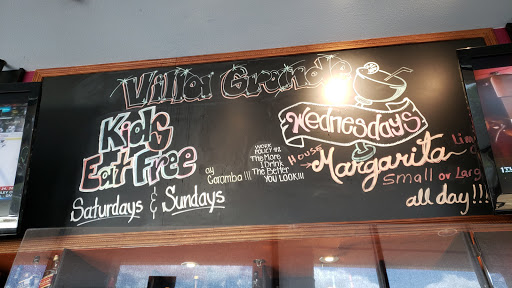 Villa Grande
Kids
Eat Free
Saturdays & Sundays
ay
Caramba!!!
The More
I Drink
The Better
You Look!!!
Wednesdays
House
Margarita
Small or Larg
all day!!!